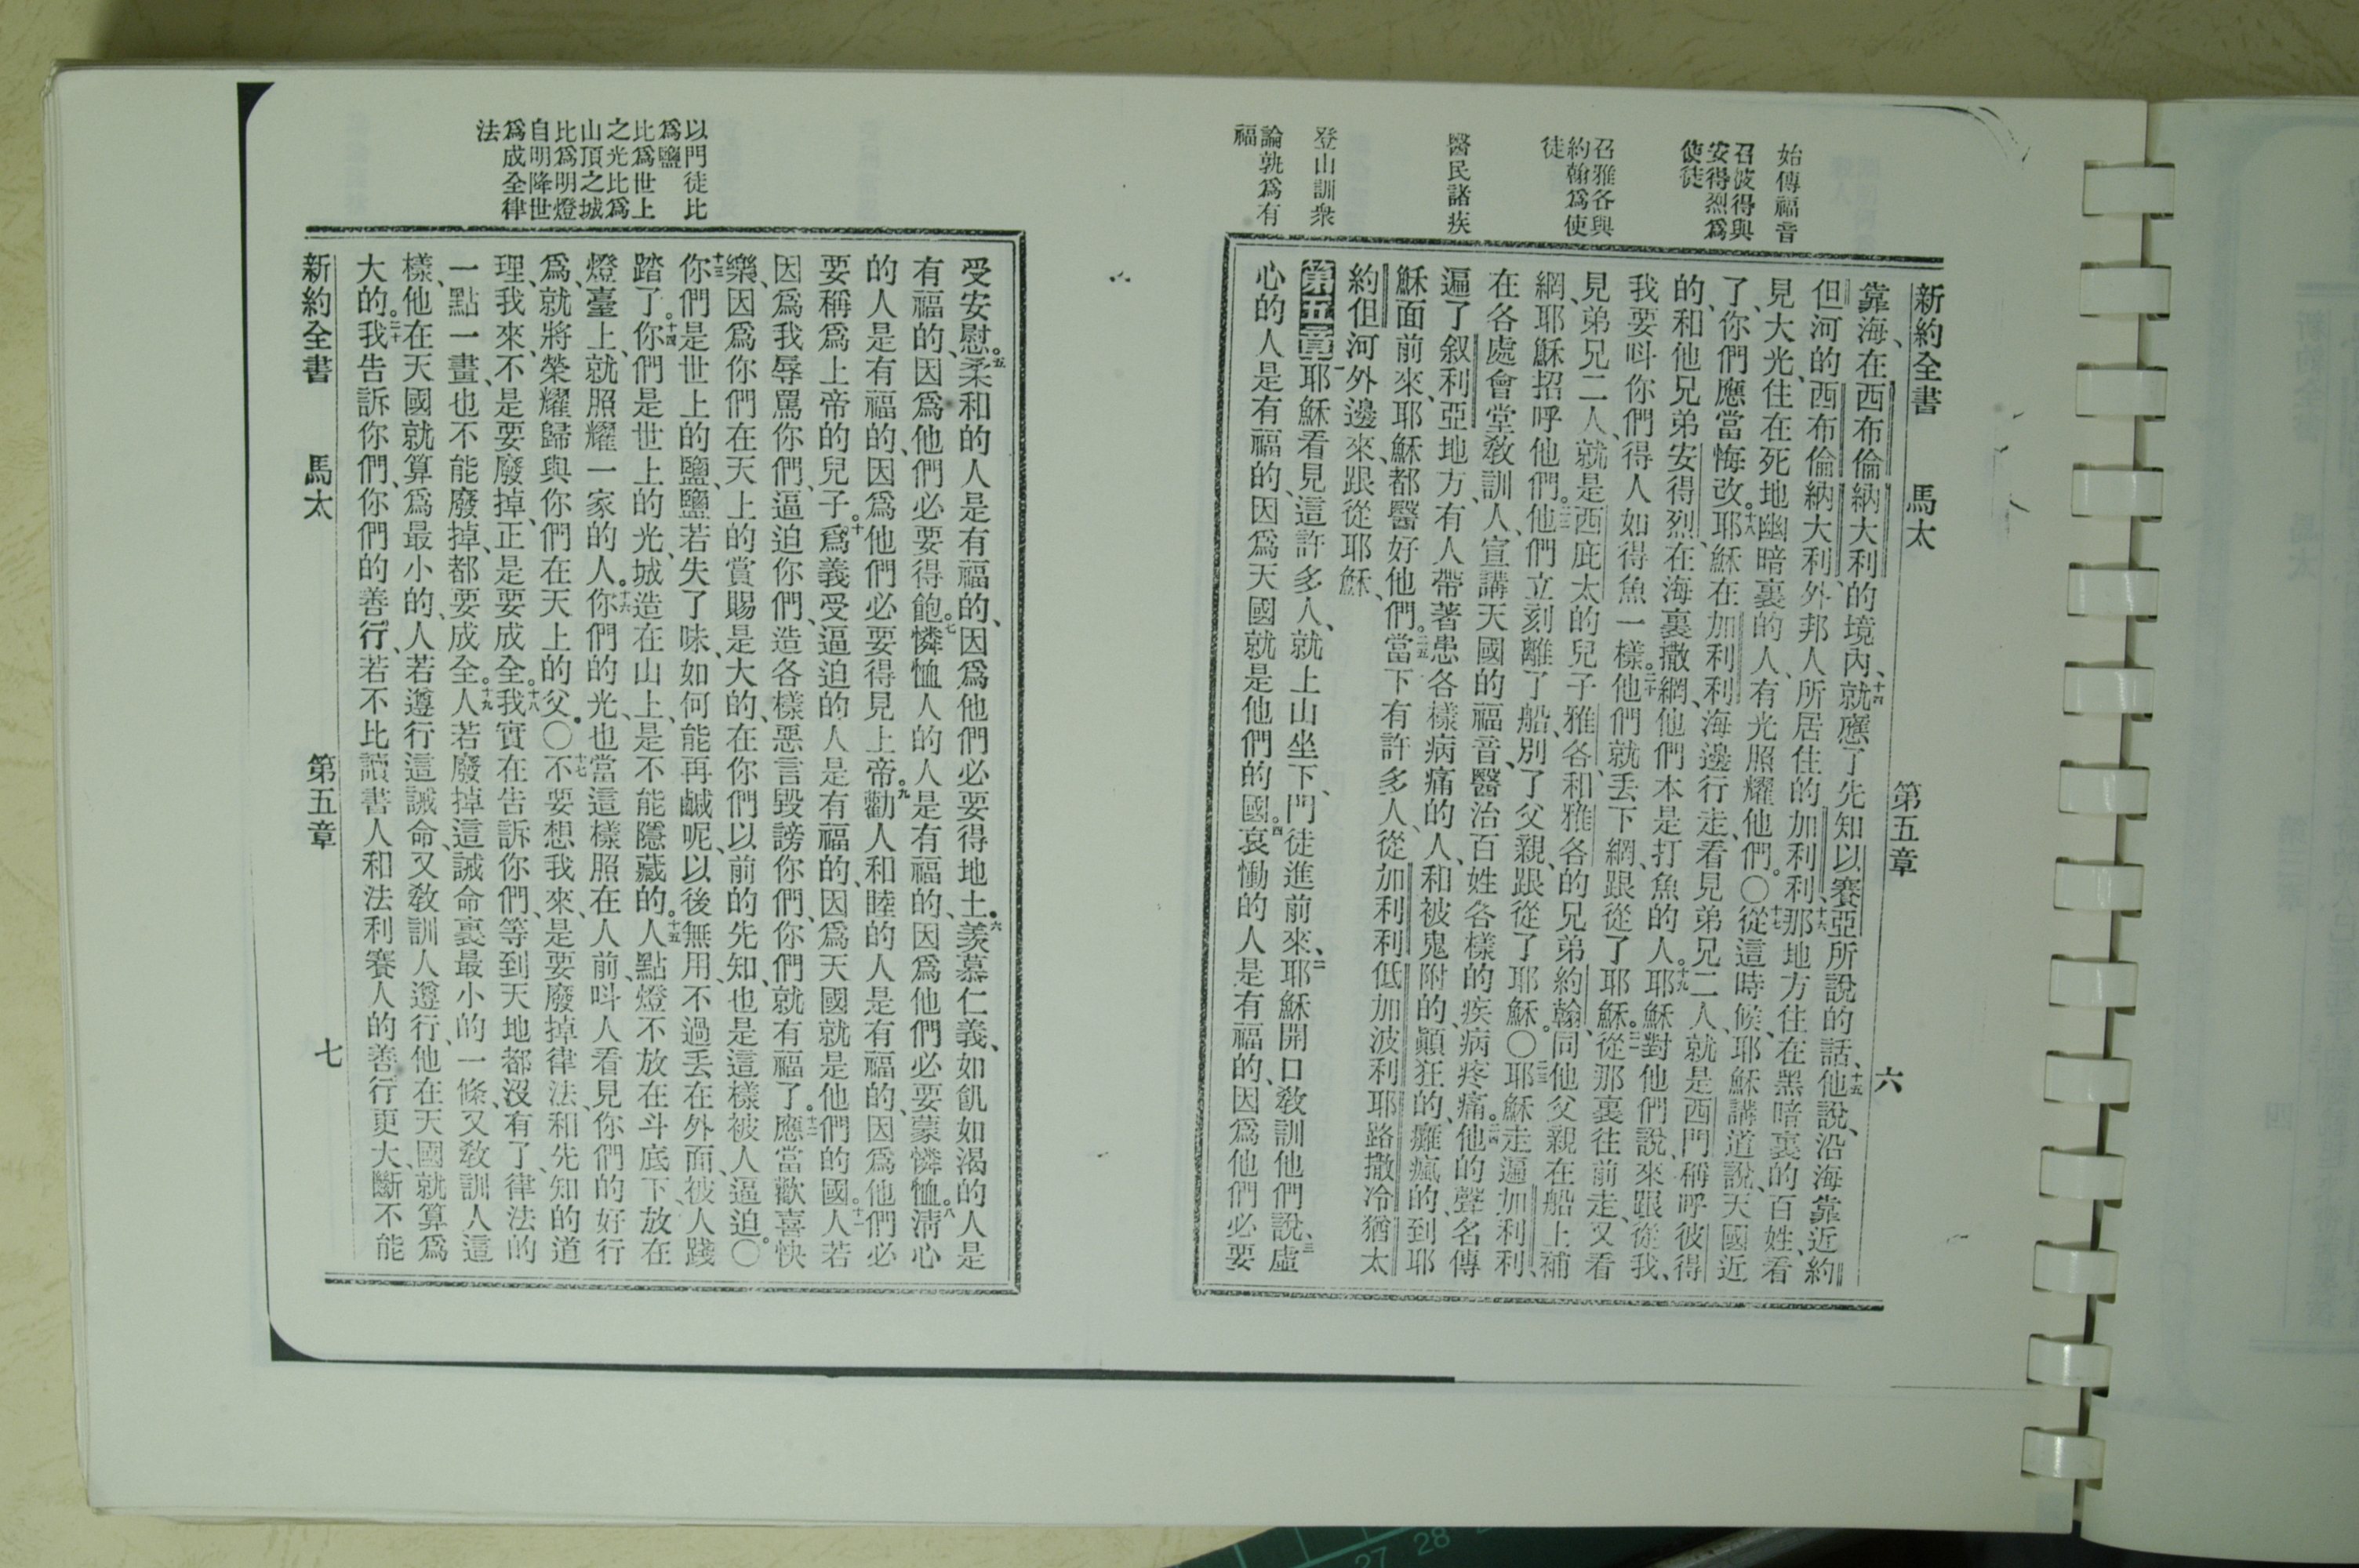 始傳福音
召彼得與
安得烈爲
使徒
召雅各與
約翰爲使
徒
醫民諸疾
登山訓衆
論孰爲有
福
新約全書 馬太 第五章 六
靠海、在西布倫納大利的境內、十四就應了先知以賽亞所說的話、十五他說、沿海靠近約
但河的西布倫納大利、外邦人所居住的加利利、十六那地方住在黑暗裏的百姓、看
見大光、住在死地幽暗裏的人、有光照耀他們。○十七從這時候、耶穌講道說、天國近
了、你們應當悔改。十八耶穌在加利利海邊行走、看見弟兄二人、就是西門、稱呼彼得
的、和他兄弟安得烈、在海裏撒網、他們本是打魚的人。十九耶穌對他們說、來跟從我、
我要呌你們得人如得魚一樣。二十他們就丢下網、跟從了耶穌。二一從那裏往前走、又看
見弟兄二人、就是西庇太的兒子雅各、和雅各的兄弟約翰、同他父親在船上補
網、耶穌招呼他們。二二他們立刻離了船、別了父親、跟從了耶穌。○二三耶穌走遍加利利、
在各處會堂敎訓人、宣講天國的福音、醫治百姓各樣的疾病疼痛。二四他的聲名傳
遍了叙利亞地方、有人帶著患各樣病痛的人、和被鬼附的、顚狂的、癱瘋的、到耶
穌面前來、耶穌都醫好他們。二五當下有許多人、從加利利低加波利耶路撒冷猶太
約但河外邊來、跟從耶穌、
第五章一耶穌看見這許多人、就上山坐下、門徒進前來、二耶穌開口敎訓他們說、三虛
心的人是有福的、因爲天國就是他們的國。四哀慟的人是有福的、因爲他們必要
以門徒比
爲鹽
比爲世上
之光比爲
山頂之城
比爲明燈
自明降世
爲成全律
法
受安慰。五柔和的人是有福的、因爲他們必要得地土。六羨慕仁義、如飢如渴的人是
有福的、因爲他們必要得飽。七憐恤人的人是有福的、因爲他們必要蒙憐恤。八清心
的人是有福的、因爲他們必要得見上帝。九勸人和睦的人是有福的、因爲他們必
要稱爲上帝的兒子。十爲義受逼迫的人是有福的、因爲天國就是他們的國。十一人若
因爲我辱罵你們、逼迫你們、造各樣惡言毀謗你們、你們就有福了。十二應當歡喜快
樂、因爲你們在天上的賞賜是大的、在你們以前的先知、也是這樣被人逼迫。○
十三你們是世上的鹽、鹽若失了味、如何能再鹹呢、以後無用、不過丢在外面、被人踐
踏了。十四你們是世上的光、城造在山上、是不能隱藏的。十五人點燈不放在斗底下、放在
燈臺上、就照耀一家的人。十六你們的光、也當這樣照在人前、呌人看見你們的好行
爲、就將榮耀歸與你們在天上的父。○十七不要想我來、是要廢掉律法、和先知的道
理、我來、不是要廢掉、正是要成全。十八我實在告訴你們、等到天地都沒有了、律法的
一點一畫、也不能廢掉、都要成全。十九人若廢掉這誡命裏最小的一條、又敎訓人這
樣、他在天國就算爲最小的、人若遵行這誡命、又敎訓人遵行、他在天國就算爲
大的。二十我告訴你們、你們的善行、若不比讀書人和法利賽人的善行更大、斷不能
新約全書 馬太 第五章 七
27 28